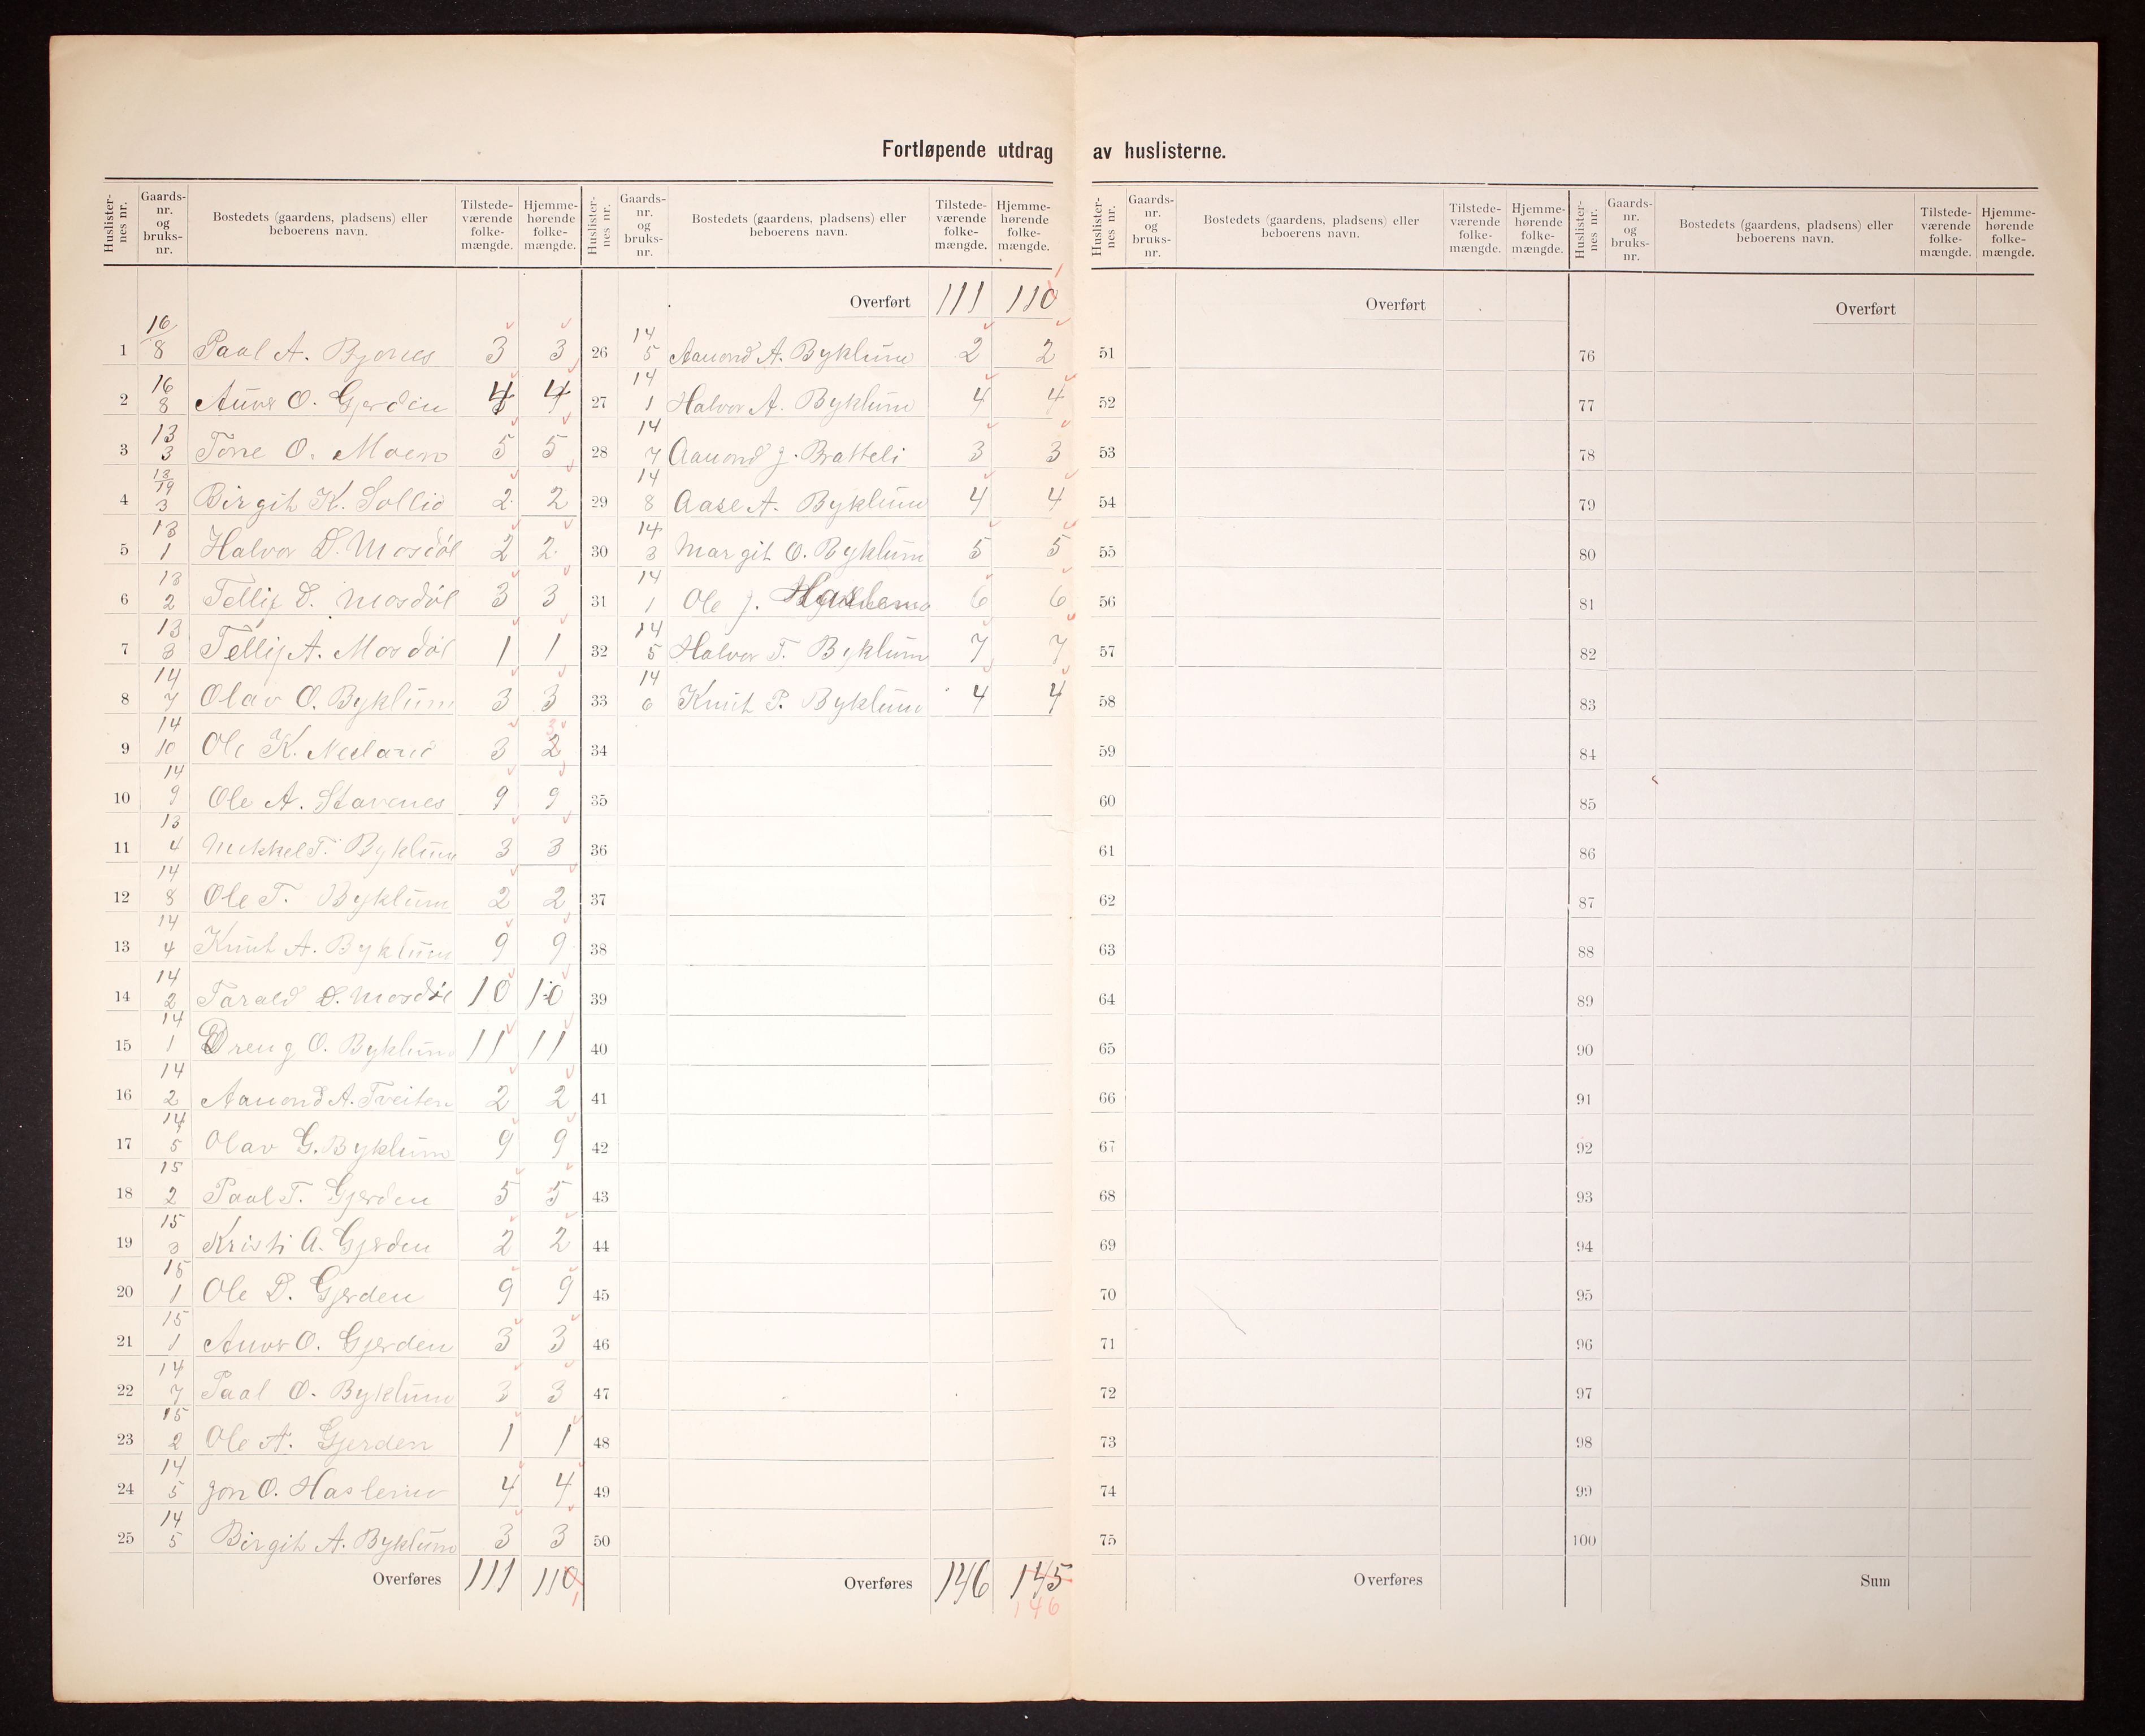 Fortløpende utdrag av huslisterne.
Huslister-nes nr. Gaards-nr. og bruks-nr. Bostedets (gaardens, pladsens) eller beboerens navn. Tilstede-værende folke-mængde. Hjemme-hørende folke-mængde.
1 16/8 Paal A. Bjones 3 3
2 16 8 O. Gjerden 4 4
3 13 3 Tone O. Moen 5 5
4 3 Birgit K. Sollid 2 2
5 13 1 Halvor D. Mosdøl 2 2
6 13 2 Tellif D. Mosdøl 3 3
7 13 3 Tellif A. Mosdøl 1 1
8 14 7 Olav O. Byklum 3 3
9 14 10 Ole K. 3 2 3
10 14 9 Ole A. Stavenes 9 9
11 13 4 Mikkel T. Byklum 3 3
12 14 8 Ole T. Byklum 2 2
13 14 4 Knut A. Byklum 9 9
14 14 2 Tarald D. Mosdøl 10 10
15 14 1 Dreng O. Byklum 11 11
16 14 2 Aanond A. Tveiten 2 2
17 14 5 Olav G. Byklum 9 9
18 15 2 Paal T. Gjerden 5 5
19 15 3 Kristi A. Gjerden 2 2
20 15 1 Ole P. Gjerden 9 9
21 15 1 O. Gjerden 3 3
22 14 7 Paal O. Byklum 3 3
23 15 2 Ole A. Gjerden 1 1
24 14 5 Jon O. Haslemo 4 4
25 14 5 Birgit A. Byklum 3 3
Overføres 111 110 1
Huslister-nes nr. Gaards-nr. og bruks-nr. Bostedets (gaardens, pladsens) eller beboerens navn. Tilstede-værende folke-mængde. Hjemme-hørende folke-mængde.
Overført 111 110 1
26 14 5 Aanond A. Byklum 2 2
27 14 1 Halvor A. Byklum 4 4
28 14 7 Aanond J. Bratteli 3 3
29 14 8 Aase A. Byklum 4 4
30 14 3 Margit O. Byklum 5 5
31 14 1 Ole J. Haslemo 6 6
32 14 5 Halvor T. Byklum 7 7
33 14 6 Knut P. Byklum 4 4
34
35
36
37
38
39
40
41
42
43
44
45
46
47
48
49
50
Overføres 146 145
146
Huslister-nes nr. Gaards-nr. og bruks-nr. Bostedets (gaardens, pladsens) eller beboerens navn. Tilstede-værende folke-mængde. Hjemme-hørende folke-mængde.
Overført
51
52
53
54
55
56
57
58
59
60
61
62
63
64
65
66
67
68
69
70
71
72
73
74
75
Overføres
Huslister-nes nr. Gaards-nr. og bruks-nr. Bostedets (gaardens, pladsens) eller beboerens navn. Tilstede-værende folke-mængde. Hjemme-hørende folke-mængde.
Overført
76
77
78
79
80
81
82
83
84
85
86
87
88
89
90
91
92
93
94
95
96
97
98
99
100
Sum